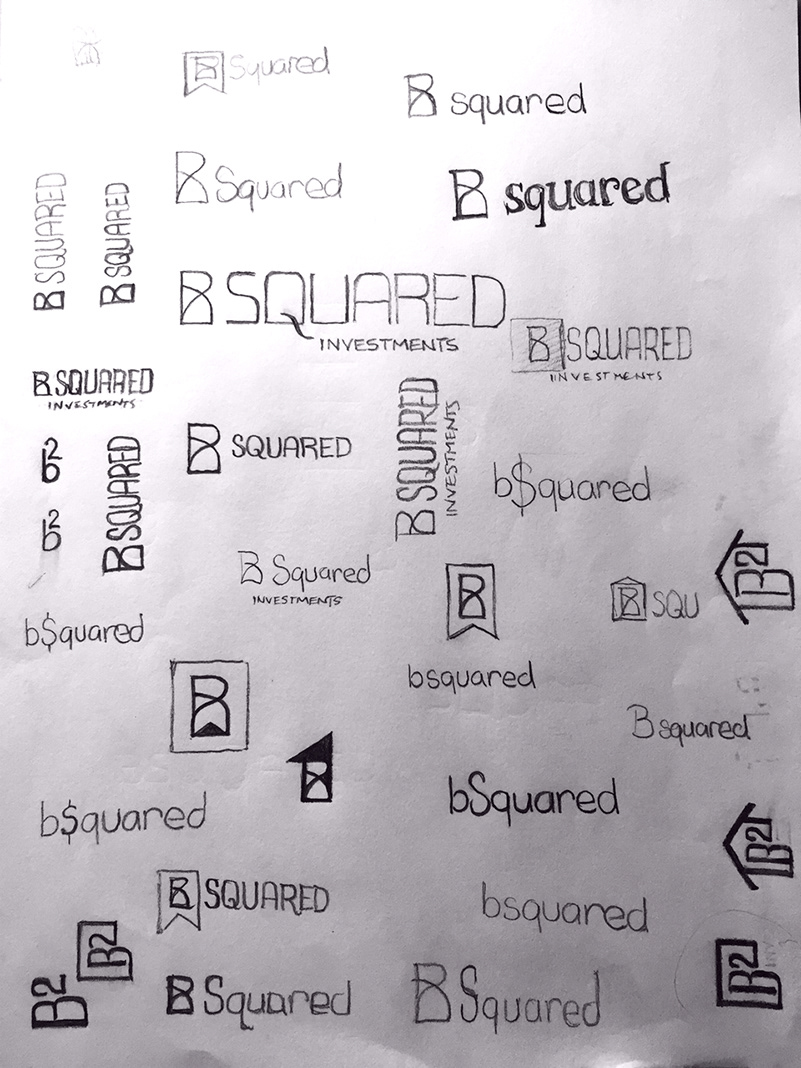 B Squared
B squared
B Squared
B squared
B SQUARED
B SQUARED
B SQUARED
INVESTMENTS
B SQUARED
INVESTMENTS
B SQUARED
INVESTMENTS
B SQUARED
INVESTMENTS
b²
B SQUARED
B SQUARED
b$quared
b²
B Squared
INVESTMENTS
B
B SQU
B²
b$quared
bsquared
B
B squared
B
b$quared
bSquared
B²
B SQUARED
bsquared
B²
B²
B²
B Squared
B Squared